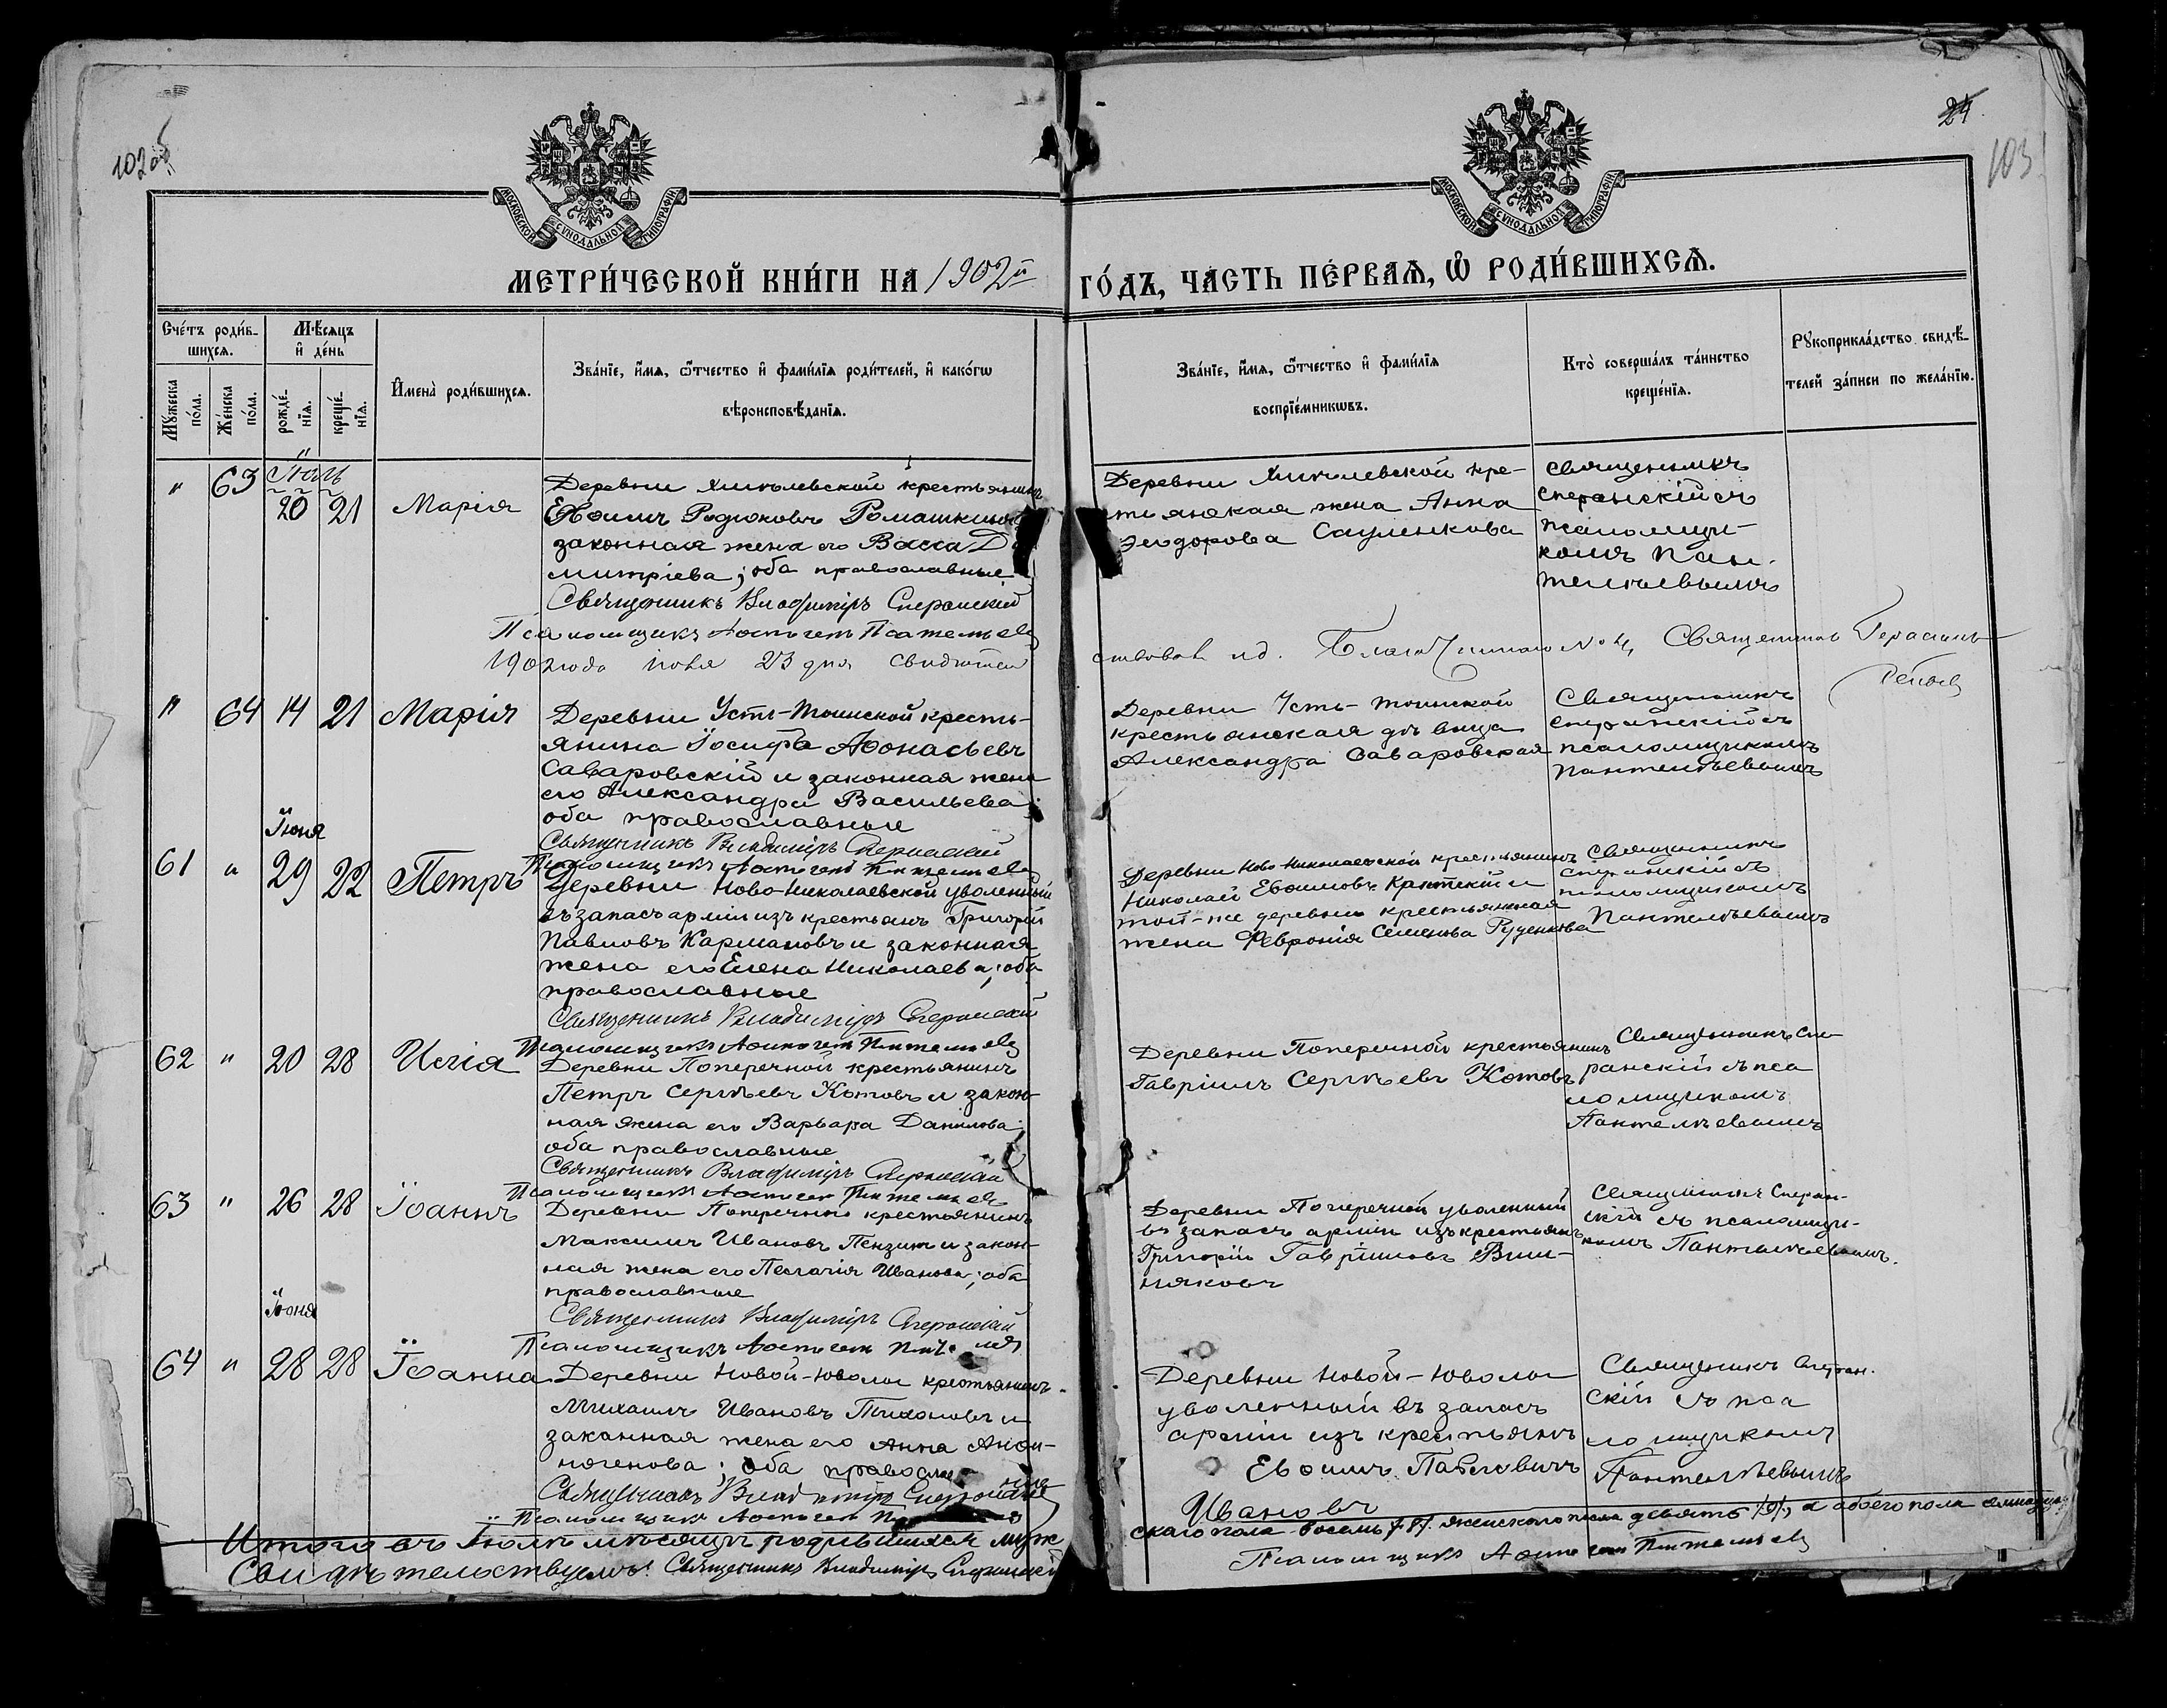 102об
24
103
МОСКОВСКОЙ СѴНОДАЛЬНОЙ ТИПОГРАФІИ
МОСКОВСКОЙ СѴНОДАЛЬНОЙ ТИПОГРАФІИ
МЕТРИ́ЧЕСКОЙ КНИ́ГИ НА 1902й
ГО́ДЪ, ЧА́СТЬ ПЕ́РВАѦ, Ѽ РОДИ́ВШИХСѦ.
Сче́тъ роди́в-
шихсѧ.
Мѣ́сѧцъ
и҆ де́нь
Мꙋ́жеска
по́ла.
Же́нска
по́ла.
рожде́-
нїѧ.
креще́-
нїѧ.
И҆мена̀ роди́вшихсѧ.
Зва́нїе, и҆́мѧ, ѻ҆́тчество и҆ фами́лїѧ роди́телей, и҆ како́гѡ
вѣроисповѣ́данїѧ.
Зва́нїе, и҆́мѧ, ѻ҆́тчество и҆ фами́лїѧ
воспрїе́мникѡвъ.
Кто̀ соверша́лъ та́инство
креще́нїѧ.
Рꙋкоприкла́дство свидѣ́-
телей за́писи по жела́нїю.
" 63 Іюль
20 21 Марія
Деревни Хмѣлевской крестьянинъ
Ефимъ Родіоновъ Ромашкинъ
законная жена его Васса Ди
митріева; оба православные
Священникъ Владиміръ Сперанскій
Псаломщикъ Пантелѣевъ
Деревни Хмѣлевской кре-
стьянская жена Анна
Ѳеодорова Сауленкова
Священникъ
Сперанскій съ
псаломщи-
комъ Пан-
телѣевымъ
1902 года 23 дня свидѣтель
ствовалъ Благочинного №4, Священникъ
" 64 14 21 Марія
Деревни Усть-Тоинской кресть-
янина Іосифъ Аѳонасьевъ
Саваровскій и законная жена
его Александра Васильева;
оба православные
Священникъ Владиміръ Сперанскій
Псаломщикъ Пантелѣевъ
Деревни Усть-Тоинской
крестьянская дѣвица
Александра Саваровская
Священникъ
Сперанскій съ
псаломщикомъ
Пантелѣевымъ
Іюня
61 " 29 22 Петръ
Деревни Ново-Николаевской уволенный
въ запасъ арміи изъ крестьянъ Григорій
Павловъ Кармановъ и законная
жена его Елена Николаева; оба
православные
Священникъ Владиміръ Сперанскій
Псаломщикъ Пантелѣевъ
Деревни Ново-Николаевской крестьянинъ
Николай Евѳимовъ и
той-же деревни крестьянская
жена Февронія Семенова Руденкова
Священникъ
Сперанскій съ
псаломщикомъ
Пантелѣевымъ
62 " 20 28 Илія
Деревни Поперечной крестьянинъ
Петръ Сергѣевъ Котовъ и закон-
ная жена его Варвара Данилова;
оба православные
Священникъ Владиміръ Сперанскій
Псаломщикъ Пантелѣевъ
Деревни Поперечной крестьянинъ
Гавріилъ Сергѣевъ Котовъ
Священникъ Спе
ранскій съ пса
ломщикомъ
Пантелѣевымъ
63 " 26 28 Іоаннъ
Деревни Поперечной крестьянинъ
Максимъ Ивановъ Пензинъ и закон-
ная жена его Пелагія Иванова; оба
православные
Священникъ Владиміръ Сперанскій
Псаломщикъ
Деревни Поперечной уволенный
въ запасъ арміи изъ крестьянъ
Григорій Гавриловъ Виш-
няковъ
Священникъ Сперан-
скій съ псаломщи-
комъ Пантелѣевымъ.
Іюня
64 " 28 28 Іоанна
Деревни Новой-Ювалы крестьянинъ
Михаилъ Ивановъ Тихоновъ и
заканная жена его Анна Анѳи-
ногенова; оба православные
Священникъ Владиміръ Сперанскій
Псаломщикъ
Деревни Новой-Ювалы
уволенный въ запасъ
арміи изъ крестьянъ
Евѳимъ Павловичъ
Ивановъ
Священникъ Сперан-
скій съ пса
ломщикомъ
Пантелѣевымъ
Итого въ Іюлѣ мѣсяцѣ родившихся муж
скаго пола восемь /8/, женскаго пола девять /9/, а обоего пола
Свидѣтельствуемъ: Священникъ Владиміръ Сперанскій
Псаломщикъ Пантелѣевъ